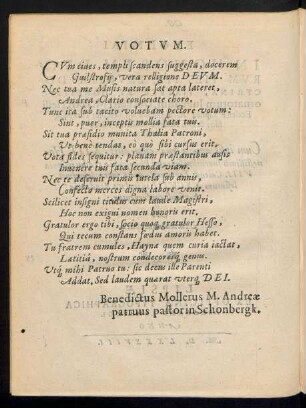 VOTVM.
CVm ciues, templi scandens suggesta, docerem
Guilstrofij, vera religione DEVM.
Nec tua me Musis natura sat apta lateret,
Andrea, Clario consociate choro.
Tunc ita sub tacito voluebam pectore votum:
Sint, puer, inceptis mollia fata tuis.
Sit tua præsidio munita Thalia Patroni,
Vt bene tendas, eò quò tibi cursus erit.
Vota fides sequitur: planam præstantibus ausis
Inuenere tuis fata secunda viam.
Nec te deseruit primis tutela sub annis,
Confecto merces digna labore venit.
Scilicet insigni titulus cum laude Magistri,
Hoc non exigui nomen honoris erit,
Gratulor ergo tibi, socio quoq; gratulor Hesso,
Qui tecum constans fœdus amoris habet.
Tu fratrem cumules, Hayna quem curia iactat,
Latitiâ, nostrum condecoresq; genus.
Vtq; mihi Patruo tu: sic deus ille Parenti
Addat, Sed laudem quærat vterq; DEI.
Benedictus Mollerus M. Andreæ
patruus pastor in Schonbergk.